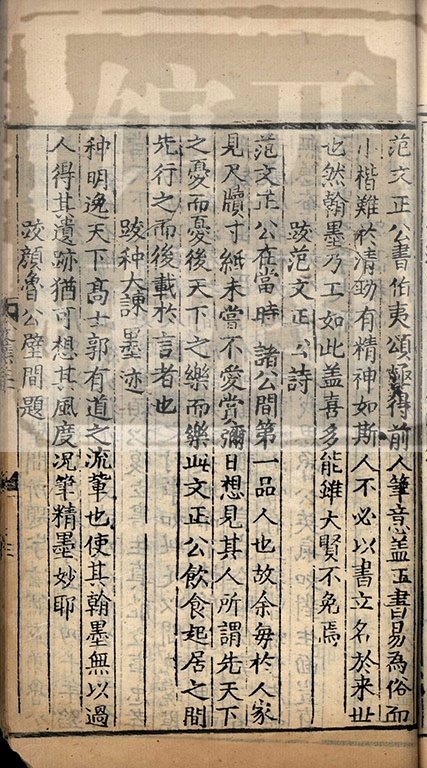 范文正公書伯夷頌極得前人筆意盖正書易為俗而
小楷難於清勁有精神如斯人不必以書立名於來世
也然翰墨乃工如此盖喜多能雖大賢不免焉
跋范文正公詩
范文正公在當時諸公間第一品人也故余每於人家
見尺牘寸紙未嘗不愛賞彌日想見其人所謂先天下
之憂而憂後天下之樂而樂此文正公飲食起居之間
先行之而後載於言者也
跋种大諫墨迹
种明逸天下高士郭有道之流輩也使其翰墨無以過
人得其遺跡猶可想其風度况筆精墨妙耶
跋顏魯公壁間題